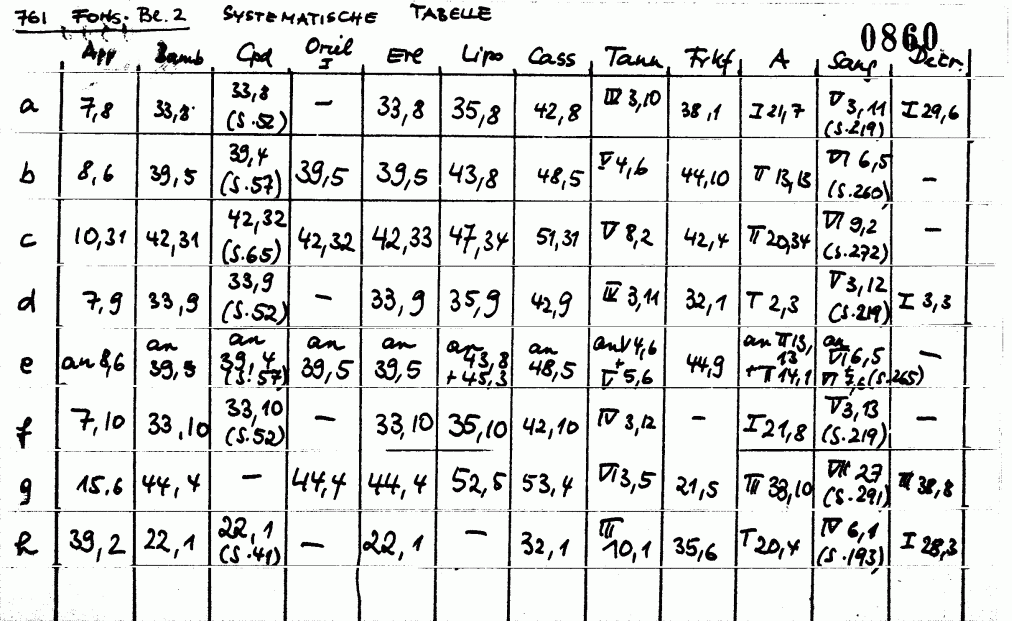 761 FONS. Bl. 2 SYSTEMATISCHE TABELLE
0860
App Bamb Cpd Oriel I Ere Lipo Cass Tann Frkf A Sang Decr.
a 7,8 33,8 33,8 (S.52) – 33,8 35,8 42,8 IV 3,10 38,1 I 21,7 V 3,11 (S.219) I 29,6
b 8,6 39,5 39,4 (S.57) 39,5 39,5 43,8 48,5 V 4,6 44,10 II 13,13 VI 6,5 (S.260) –
c 10,31 42,31 42,32 (S.65) 42,32 42,33 47,34 51,31 V 8,2 42,4 II 20,34 VI 9,2 (S.272) –
d 7,9 33,9 33,9 (S.52) – 33,9 35,9 42,9 IV 3,11 32,1 I 2,3 V 3,12 (S.219) I 3,3
e an 8,6 an 39,5 an 39,4 (S.57) an 39,5 an 39,5 an 43,8 + 45,3 an 48,5 an V 4,6 + V 5,6 44,9 an II 13,13 + II 14,1 an VI 6,5 (S.265) –
f 7,10 33,10 33,10 (S.52) – 33,10 35,10 42,10 IV 3,12 – I 21,8 V 3,13 (S.219) –
g 15,6 44,4 – 44,4 44,4 52,5 53,4 VI 3,5 21,5 III 38,10 VII 27 (S.291) III 38,8
h 39,2 22,1 22,1 (S.41) – 22,1 – 32,1 III 10,1 35,6 I 20,4 IV 6,1 (S.193) I 28,3